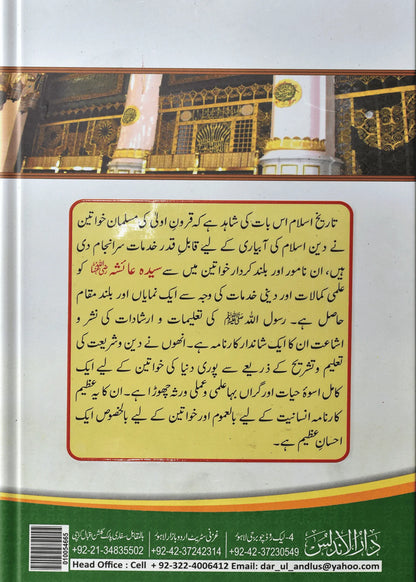 تاریخ اسلام اس بات کی شاہد ہے کہ قرونِ اولیٰ کی مسلمان خواتین
نے دین اسلام کی آبیاری کے لیے قابلِ قدر خدمات سرانجام دی
ہیں، ان نامور اور بلند کردار خواتین میں سے سیدہ عائشہ رضی اللہ عنہا کو
علمی کمالات اور دینی خدمات کی وجہ سے ایک نمایاں اور بلند مقام
حاصل ہے۔ رسول اللہ ﷺ کی تعلیمات و ارشادات کی نشر و
اشاعت ان کا ایک شاندار کارنامہ ہے۔ انھوں نے دین و شریعت کی
تعلیم و تشریح کے ذریعے سے پوری دنیا کی خواتین کے لیے ایک
کامل اسوۂ حیات اور گراں بہا علمی و عملی ورثہ چھوڑا ہے۔ ان کا یہ عظیم
کارنامہ انسانیت کے لیے بالعموم اور خواتین کے لیے بالخصوص ایک
احسانِ عظیم ہے۔
دارالاندلس
4- لیک روڈ چوبرجی لاہور
+92-42-37230549
غزنی سٹریٹ اردو بازار لاہور
+92-42-37242314
بالمقابل سفاری پارک گلشن اقبال کراچی
+92-21-34835502
Head Office : Cell + 92-322-4006412 Email: dar_ul_andlus@yahoo.com
010054665